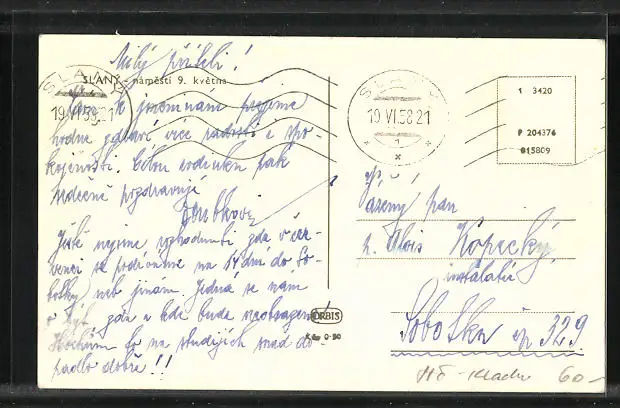 Milý příteli!
SLANÝ - náměstí 9. května
SLANÝ
19.VI.58.21
k jmeninám přejeme
hodně zdraví více radosti a spo-
kojenosti. Celou rodinku pak
srdečně pozdravují
Ještě nejsme rozhodnuti zda v čer-
venci se podíváme na 14 dní do So-
botky neb jinam. Jedná se nám
o byt, zda a kde bude
to na studijích snad do-
padlo dobře!!
ORBIS
SLANÝ
19.VI.58.21
1
1 3420
P 204376
015809
Vážený pan
p. Alois Kopecký
instalatér
Sobotka čp 329
60-